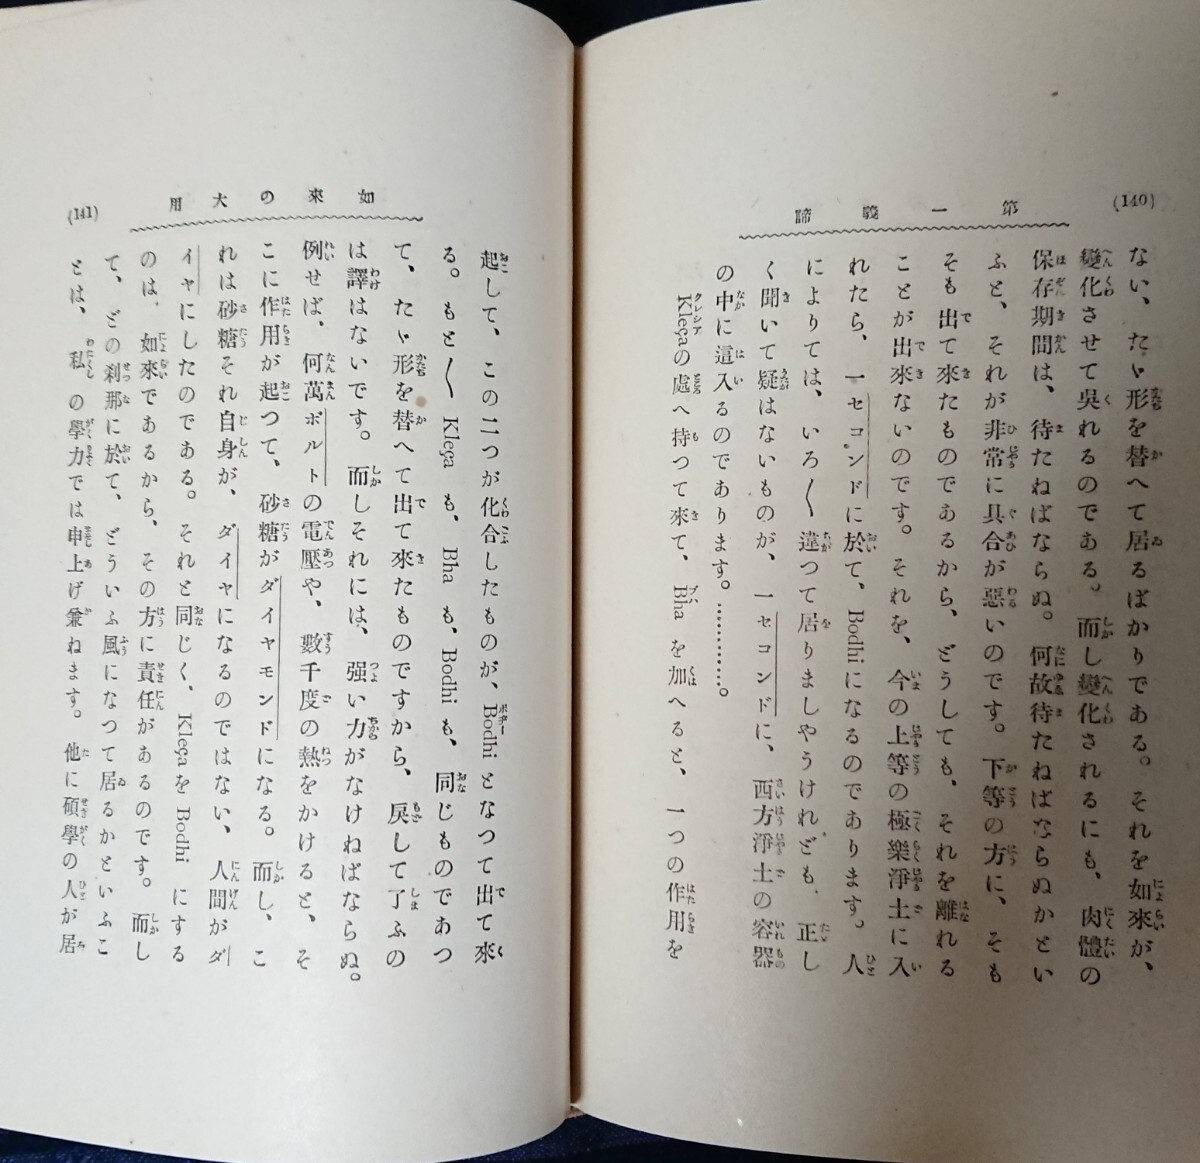 (140)
第一義諦
ない、たゞ形を替へて居るばかりである。それを如來が、
變化させて吳れるのである。而し變化されるにも、肉體の
保存期間は、待たねばならぬ。何故待たねばならぬかとい
ふと、それが非常に具合が惡いのです。下等の方に、そも
そも出て來たものであるから、どうしても、それを離れる
ことが出來ないのです。それを、今の上等の極樂淨土に入
れたら、一セコンドに於て、Bodhiになるのであります。人
によりては、いろ〱違つて居りましやうけれども、正し
く聞いて疑はないものが、一セコンドに、西方淨土の容器
の中に這入るのであります。…………。
Kleçaの處へ持つて來て、Bhaを加へると、一つの作用を
如來の大用
(141)
起して、この二つが化合したものが、Bodhiとなつて出て來
る。もと〱Kleçaも、Bhaも、Bodhiも、同じものであつ
て、たゞ形を替へて出て來たものですから、戾して了ふの
は譯はないです。而しそれには、强い力がなければならぬ。
例せば、何萬ボルトの電壓や、數千度の熱をかけると、そ
こに作用が起つて、砂糖がダイヤモンドになる。而し、こ
れは砂糖それ自身が、ダイヤになるのではない、人間がダ
イヤにしたのである。それと同じく、KleçaをBodhiにする
のは、如來であるから、その方に責任があるのです。而し
て、どの刹那に於て、どういふ風になつて居るかといふこ
とは、私の學力では申上げ兼ねます。他に碩學の人が居